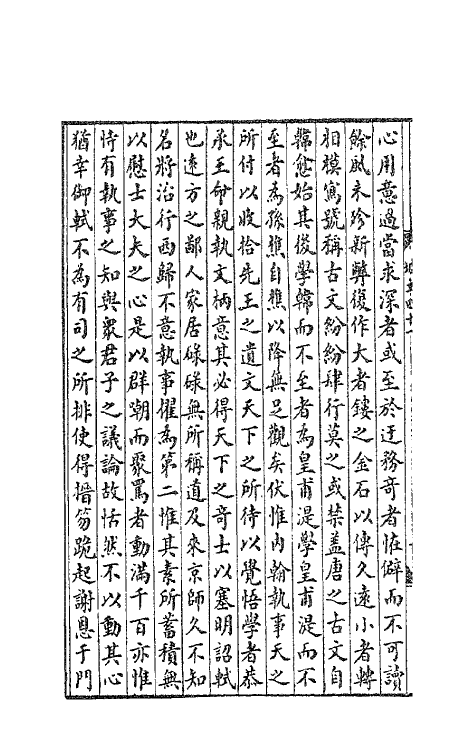 心用意過當求深者或至於迂務奇者怪僻而不可讀
餘風未殄新弊復作大者鏤之金石以傳久遠小者轉
相模寫號稱古文紛紛肆行莫之或禁盖唐之古文自
韓愈始其後學韓而不至者為皇甫湜學皇甫湜而不
至者為孫樵自樵以降無足觀矣伏惟内翰執事天之
所付以收拾先王之遺文天下之所待以覺悟學者恭
承王命親執文柄意其必得天下之奇士以塞明詔軾
也逺方之鄙人家居碌碌無所稱道及來京師久不知
名將治行西歸不意執事擢為第二惟其素所蓄積無
以慰士大夫之心是以群潮而聚罵者動滿千百亦惟
恃有執事之知與衆君子之議論故恬然不以動其心
猶幸御軾不為有司之所排使得搢笏跪起謝恩于門